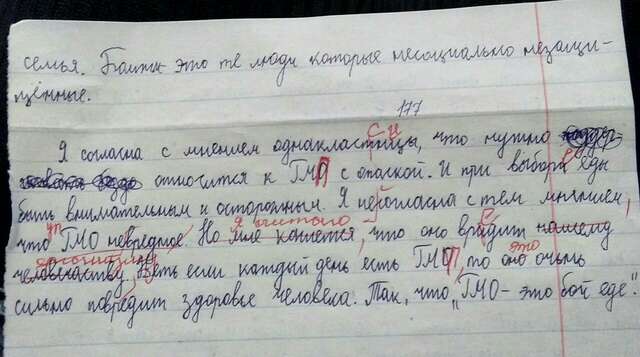 семья. Бомжи это те люди которые несоциально незащи-
щённые.
177
си
Я согласна с мнением однакластницы, что нужно
относится к ГМО с опаской. И при выбора еды
быть внимательным и осторожным. Я несогласна с тем мнением,
я считаю
что ГМО невредное. Но мне кажется, что оно вредит нашему
организму это
человечаству. Ведь если каждый день есть ГМО, то оно очень
сильно повредит здоровье человека. Так, что „ГМО - это бой еде".